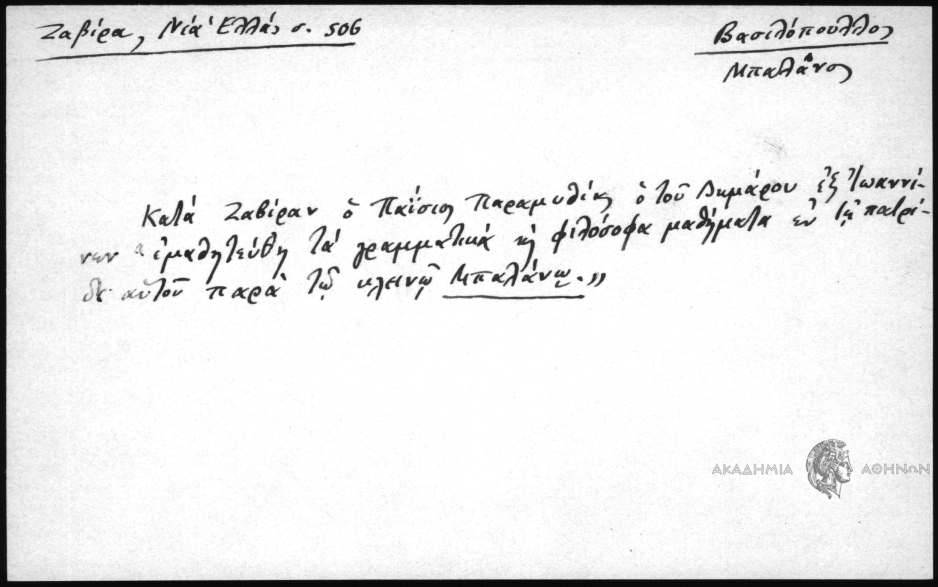 Ζαβίρα, Νέα Ἑλλάς σ. 506
Βασιλόπουλλος
Μπαλᾶνος
Κατά Ζαβίραν ὁ Παΐσιος Παραμυθίας ὁ τοῦ Δημάρου ἐξ Ἰωαννί-
νων "ἐμαθητεύθη τά γραμματικά κ̀ φιλόσοφα μαθήματα ἐν τῇ πατρί-
δι αὐτοῦ παρὰ τῷ κλεινῷ Μπαλάνῳ.„
ΑΚΑΔΗΜΙΑ ΑΘΗΝΩΝ